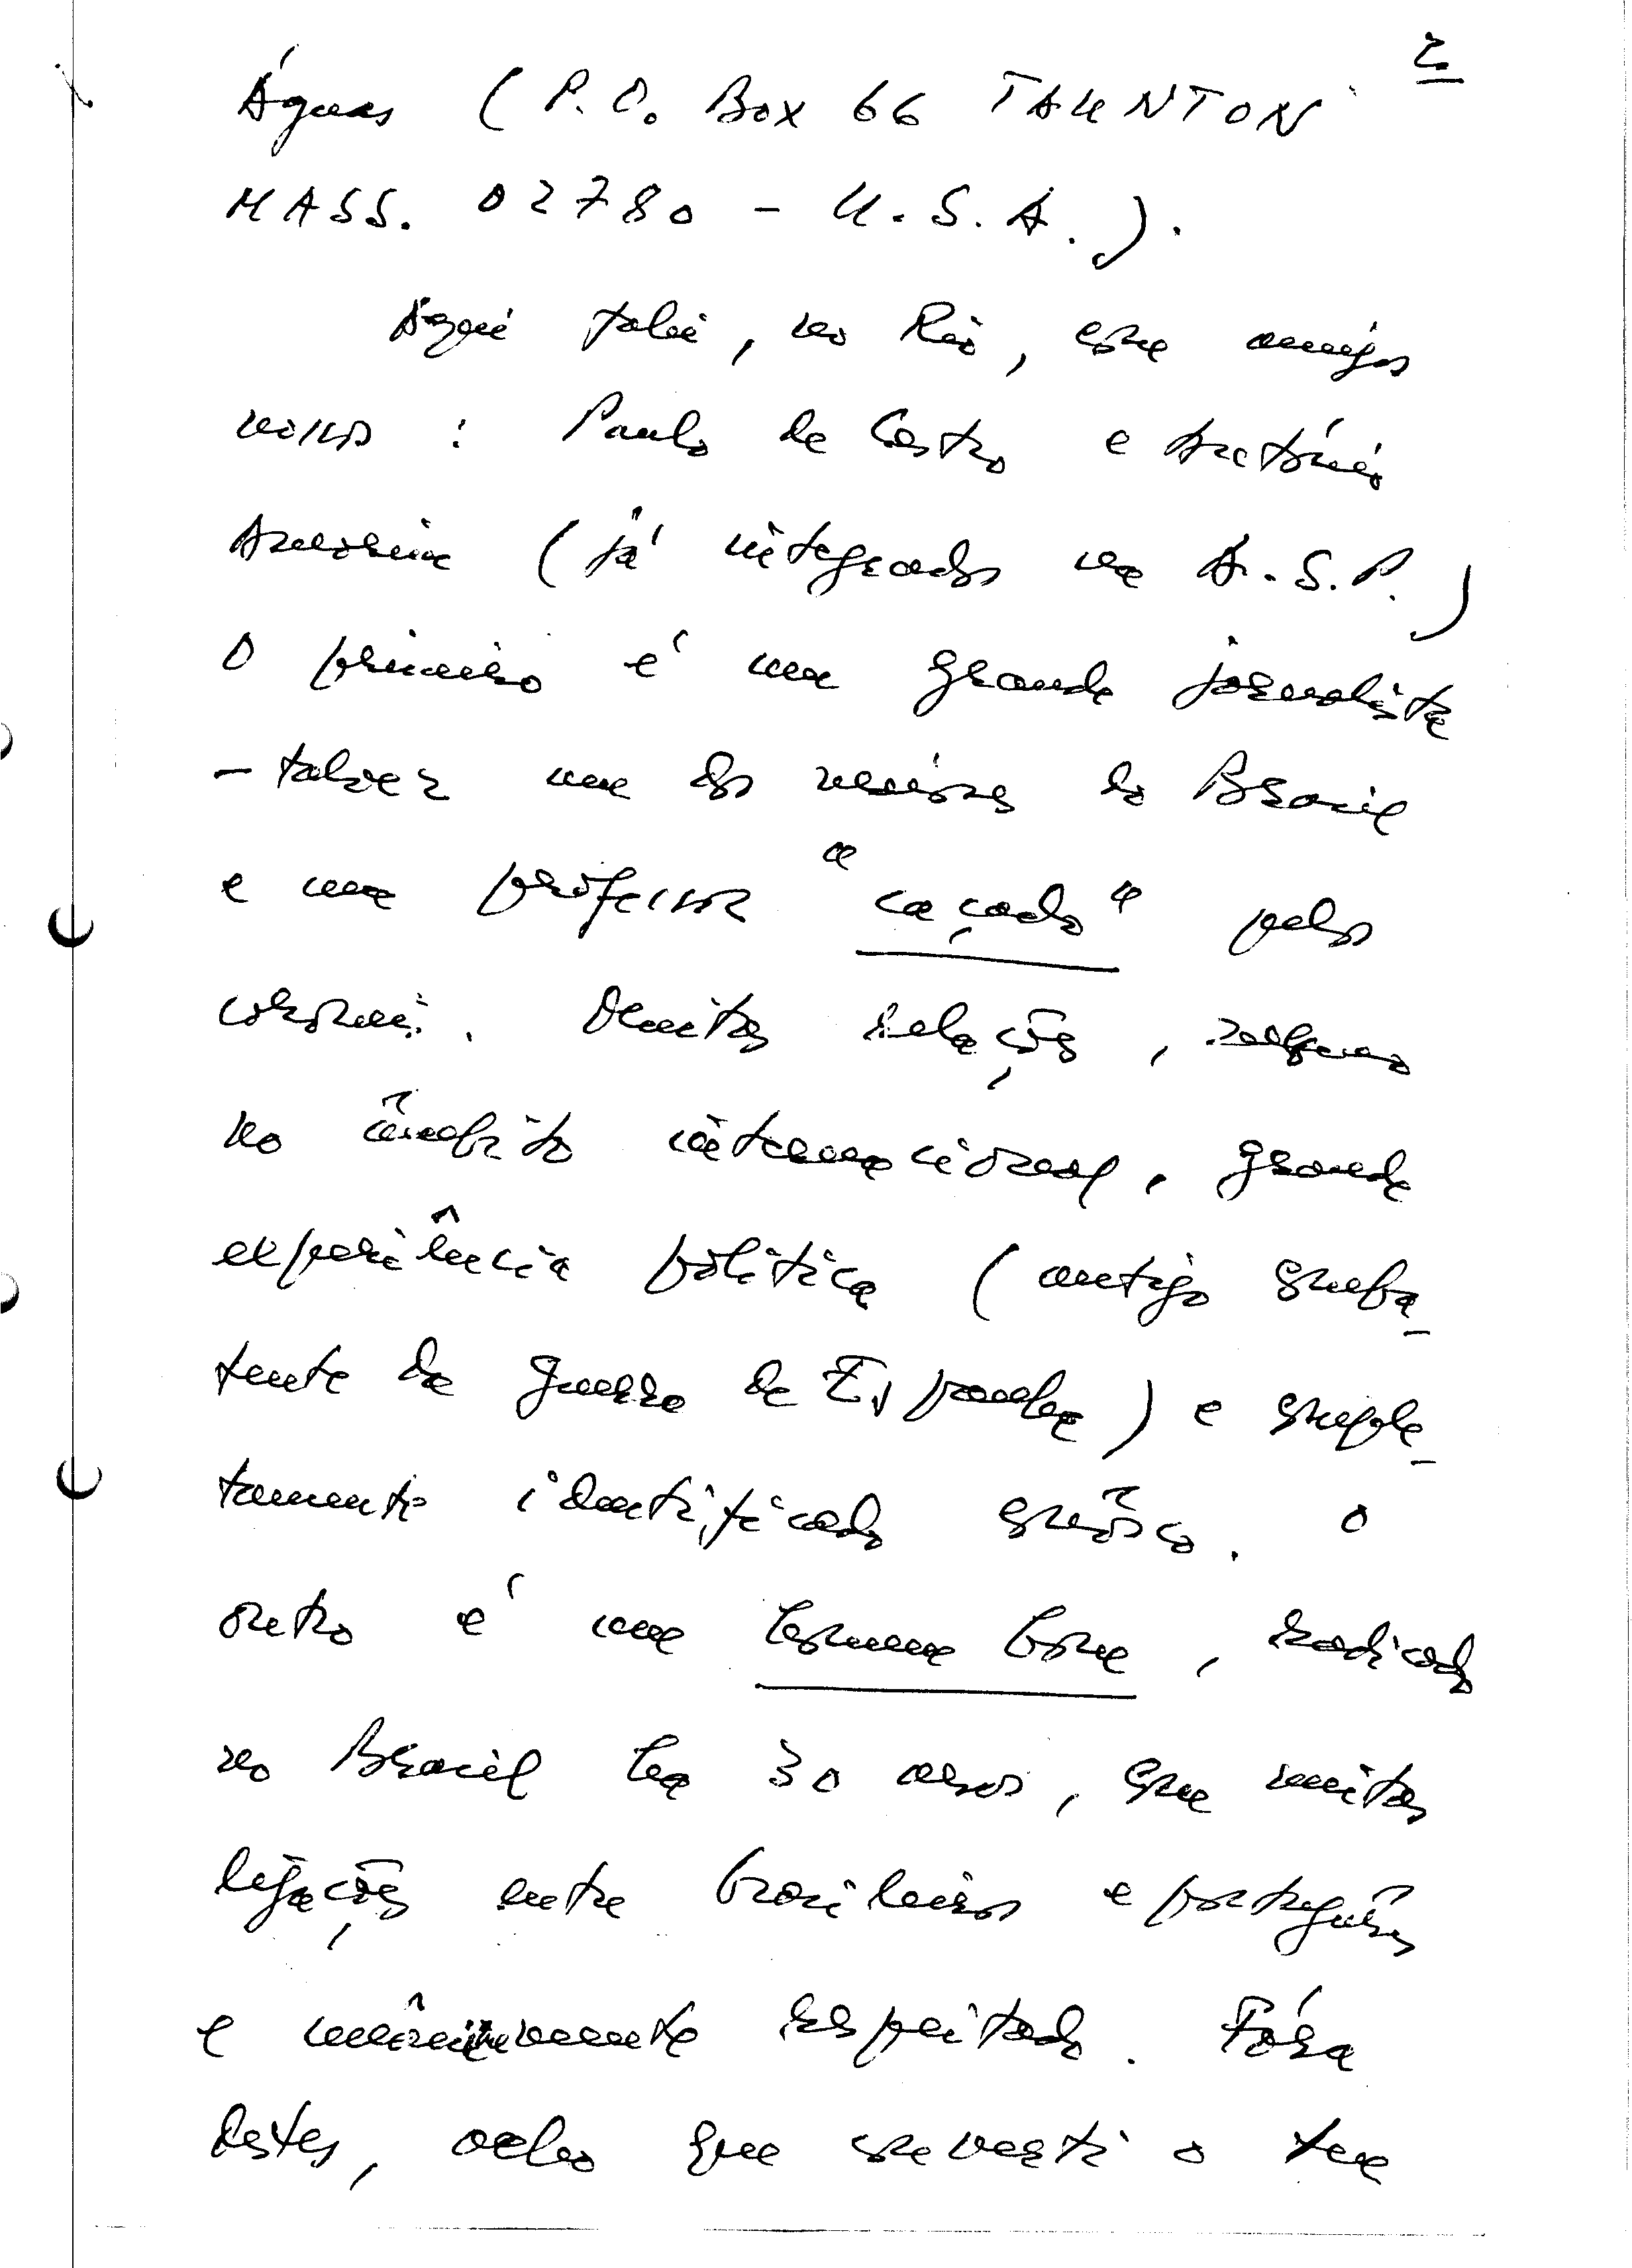 2.
Águas (P.O. Box 66 TAUNTON
MASS. 02780 - U.S.A.).
Aqui falei, no Rio, com amigos
nossos: Paulo de Castro e António
Amorim (já integrado na A.S.P.)
O primeiro é um grande jornalista
- talvez um dos maiores do Brasil
e um professor "caçado" pelos
coronéis. Muitas relações, mesmo
no âmbito internacional, grande
experiência política (antigo comba-
tente da guerra de Espanha) e comple-
tamente identificado connôsco. O
outro é um homem bom, radicado
no Brasil há 30 anos, com muitas
ligações entre brasileiros e portuguêses
e unânimemente respeitado. Fóra
destes, acho que converti o teu